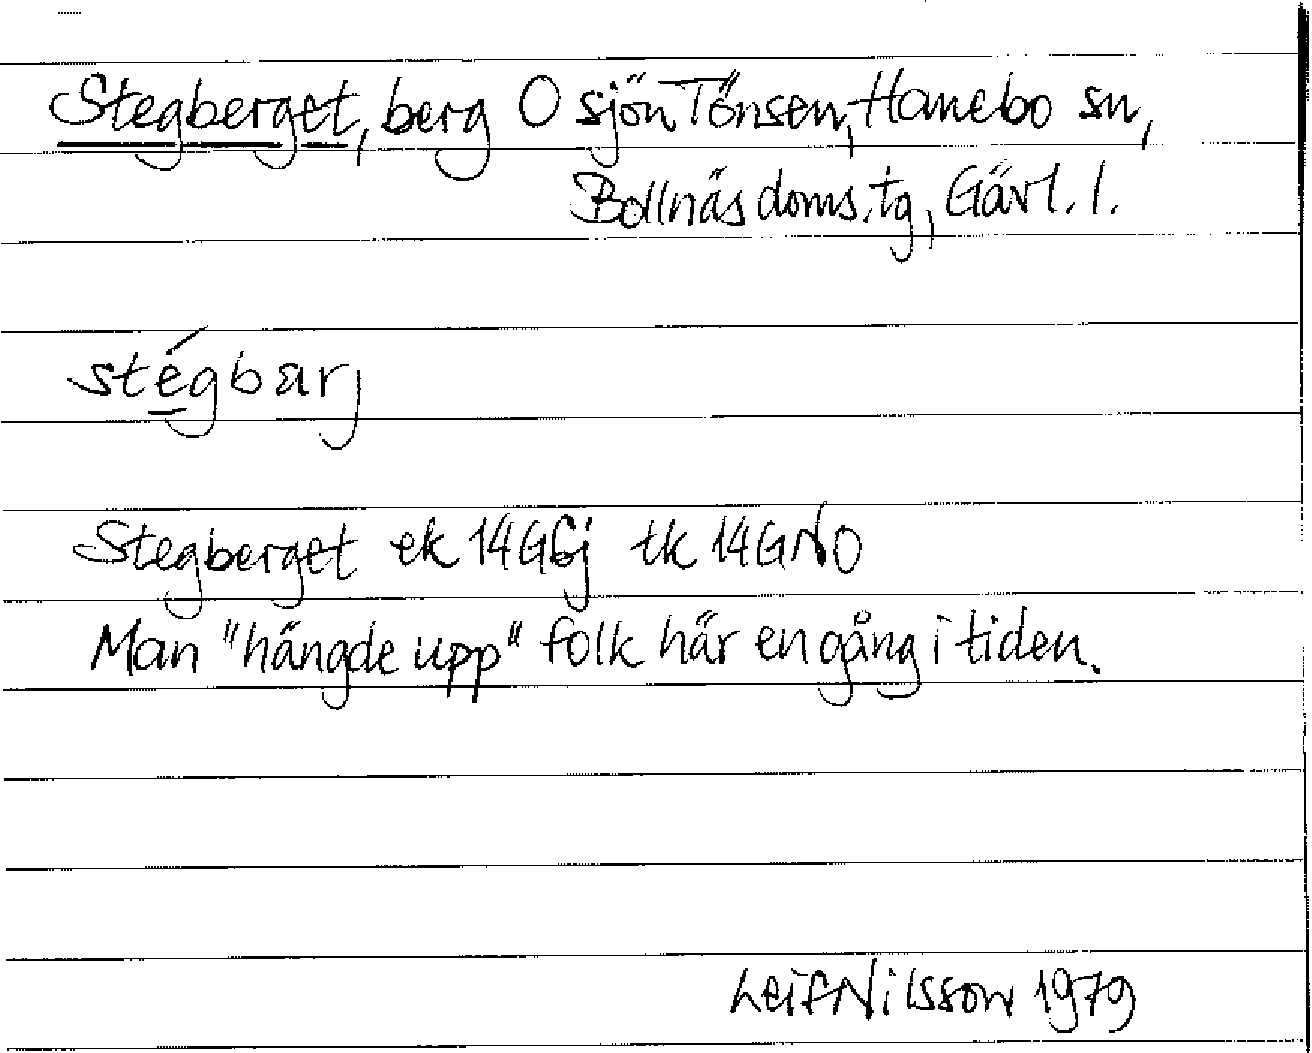 Stegberget, berg O sjön Tönsen, Hanebo sn,
Bollnäs doms.tg, Gävl. l.
stégbarj
Stegberget ek 14G6j tk 14GNO
Man "hängde upp" folk här en gång i tiden.
Leif Nilsson 1979